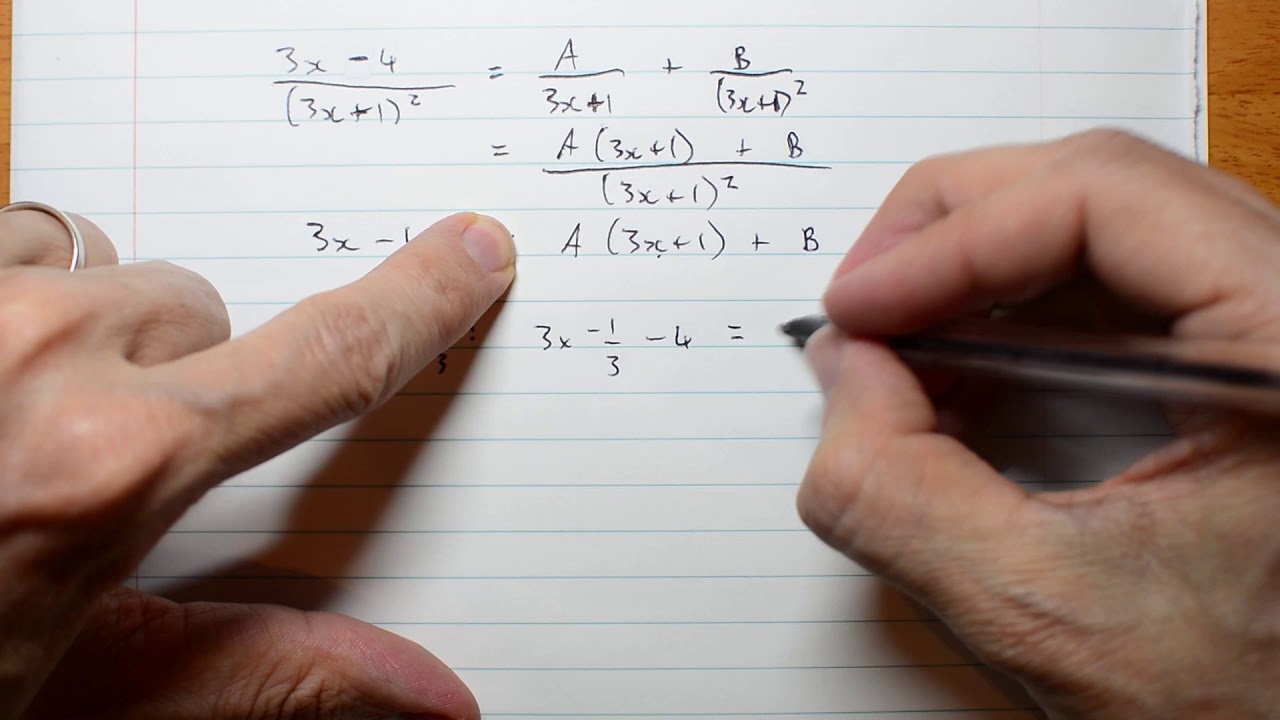 3x - 4 / (3x+1)² = A / 3x+1 + B / (3x+1)²
= A (3x+1) + B / (3x+1)²
3x - A (3x+1) + B
3 : 3x -1/3 - 4 =